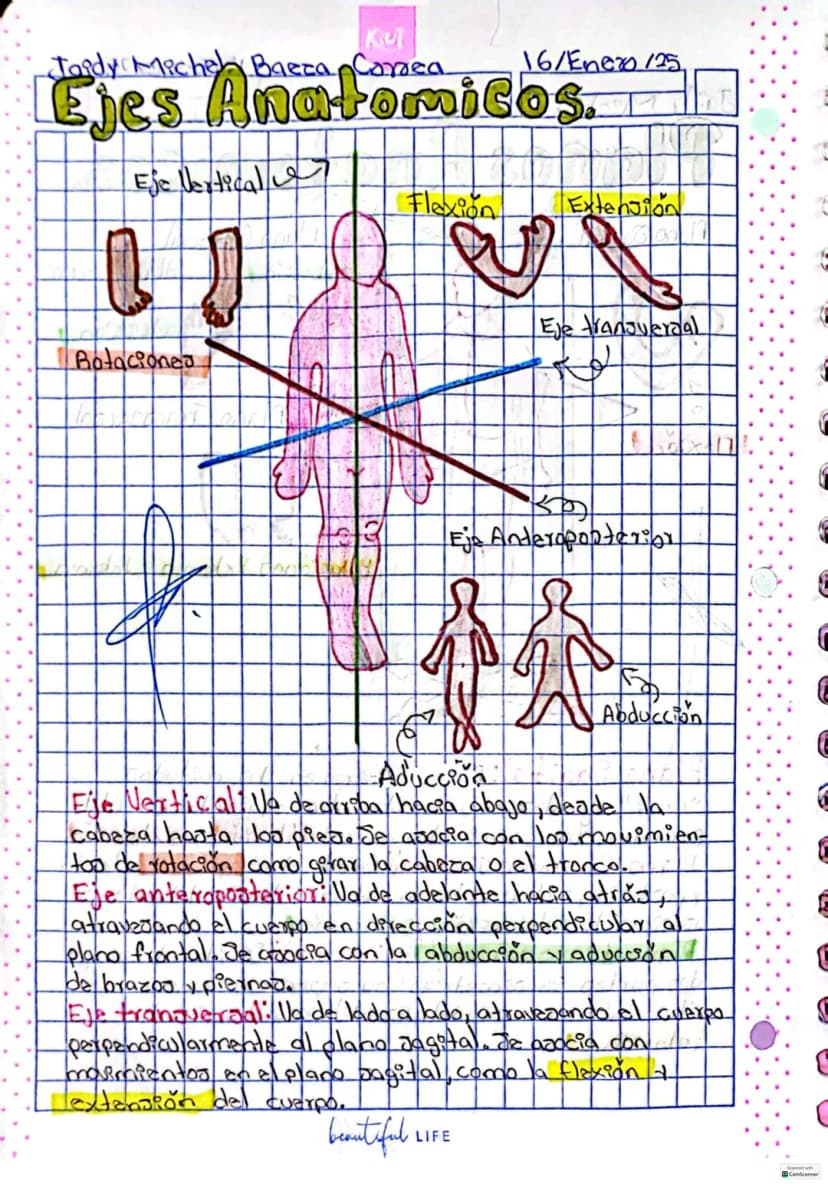 KIUT
Joidy Michel Baeza Correa 16/Enero/25
Ejes Anatomicos.
Eje Vertical
Flexión Extensión
Eje transversal
Rotaciones
Eje Anteroposterior
Abducción
Aducción
Eje Vertical: Va de arriba hacia abajo, desde la
cabeza hasta los pies. Se asocia con los movimien-
tos de rotación como girar la cabeza o el tronco.
Eje anteroposterior: Va de adelante hacia atrás,
atravesando el cuerpo en dirección perpendicular al
plano frontal. Se asocia con la abducción y aducción
de brazos y piernas.
Eje transversal: Va de lado a lado, atravesando el cuerpo
perpendicularmente al plano sagital. Se asocia con
movimientos en el plano sagital, como la flexión y
extensión del cuerpo.
beautiful LIFE
Scanned with
CamScanner